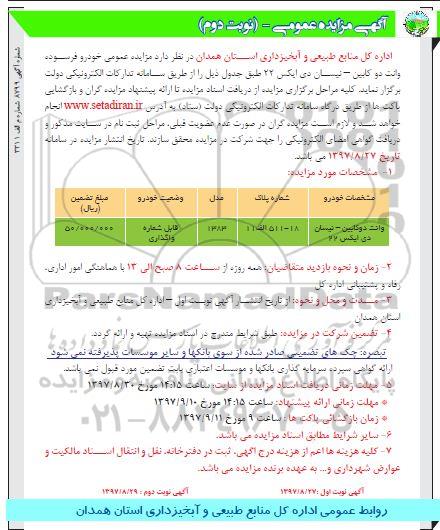 آگهی مزایده عمومی - (نوبت دوم)
اداره کل منابع طبیعی و آبخیزداری استان همدان در نظر دارد مزایده عمومی خودرو فرسوده
وانت دو کابین – نیسان دی ایکس ۲۲ طبق جدول ذیل را از طریق سامانه تدارکات الکترونیکی دولت
برگزار نماید. کلیه مراحل برگزاری مزایده از دریافت اسناد مزایده تا ارائه پیشنهاد مزایده گران و بازگشایی
پاکت ها از طریق درگاه سامانه تدارکات الکترونیکی دولت (ستاد) به آدرس www.setadiran.ir انجام
خواهد شد و لازم است مزایده گران در صورت عدم عضویت قبلی، مراحل ثبت نام در سایت مذکور و
دریافت گواهی امضای الکترونیکی را جهت شرکت در مزایده محقق سازند. تاریخ انتشار مزایده در سامانه
تاریخ ۱۳۹۷/۸/۲۷ می باشد.
۱- مشخصات مورد مزایده:
مشخصات خودرو شماره پلاک مدل وضعیت خودرو مبلغ تضمین (ریال)
وانت دوکابین – نیسان دی ایکس ۲۲ ۱۸-۵۱۱ الف ۱۱ ۱۳۸۳ قابل شماره واگذاری ۵۰/۰۰۰/۰۰۰
۲- زمان و نحوه بازدید متقاضیان: همه روزه از ساعت ۸ صبح الی ۱۳ با هماهنگی امور اداری،
رفاه و پشتیبانی اداره کل
۳- مدت و محل و نحوه: از تاریخ انتشار آگهی نوبت اول – اداره کل منابع طبیعی و آبخیزداری
استان همدان
۴- تضمین شرکت در مزایده: طبق شرایط مندرج در اسناد مزایده تهیه و ارائه گردد.
تبصره: چک های تضمینی صادر شده از سوی بانکها و سایر موسسات پذیرفته نمی شود
ارائه گواهی سپرده سرمایه گذاری بانکها و موسسات اعتباری بابت تضمین مورد قبول نمی باشد.
۵- مهلت زمانی دریافت اسناد مزایده از سایت: ساعت ۱۴:۱۵ مورخ ۱۳۹۷/۸/۳۰
* مهلت زمانی ارائه پیشنهاد: ساعت ۱۴:۱۵ مورخ ۱۳۹۷/۹/۱۰
* زمان بازگشائی پاکت ها : ساعت ۹ مورخ ۱۳۹۷/۹/۱۱
۶- سایر شرایط مطابق اسناد مزایده می باشد.
۷- کلیه هزینه ها اعم از هزینه درج آگهی، ثبت در دفترخانه، نقل و انتقال اسناد مالکیت و
عوارض شهرداری و... به عهده برنده مزایده می باشد.
آگهی نوبت اول :۱۳۹۷/۸/۲۷ آگهی نوبت دوم : ۱۳۹۷/۸/۲۹
روابط عمومی اداره کل منابع طبیعی و آبخیزداری استان همدان